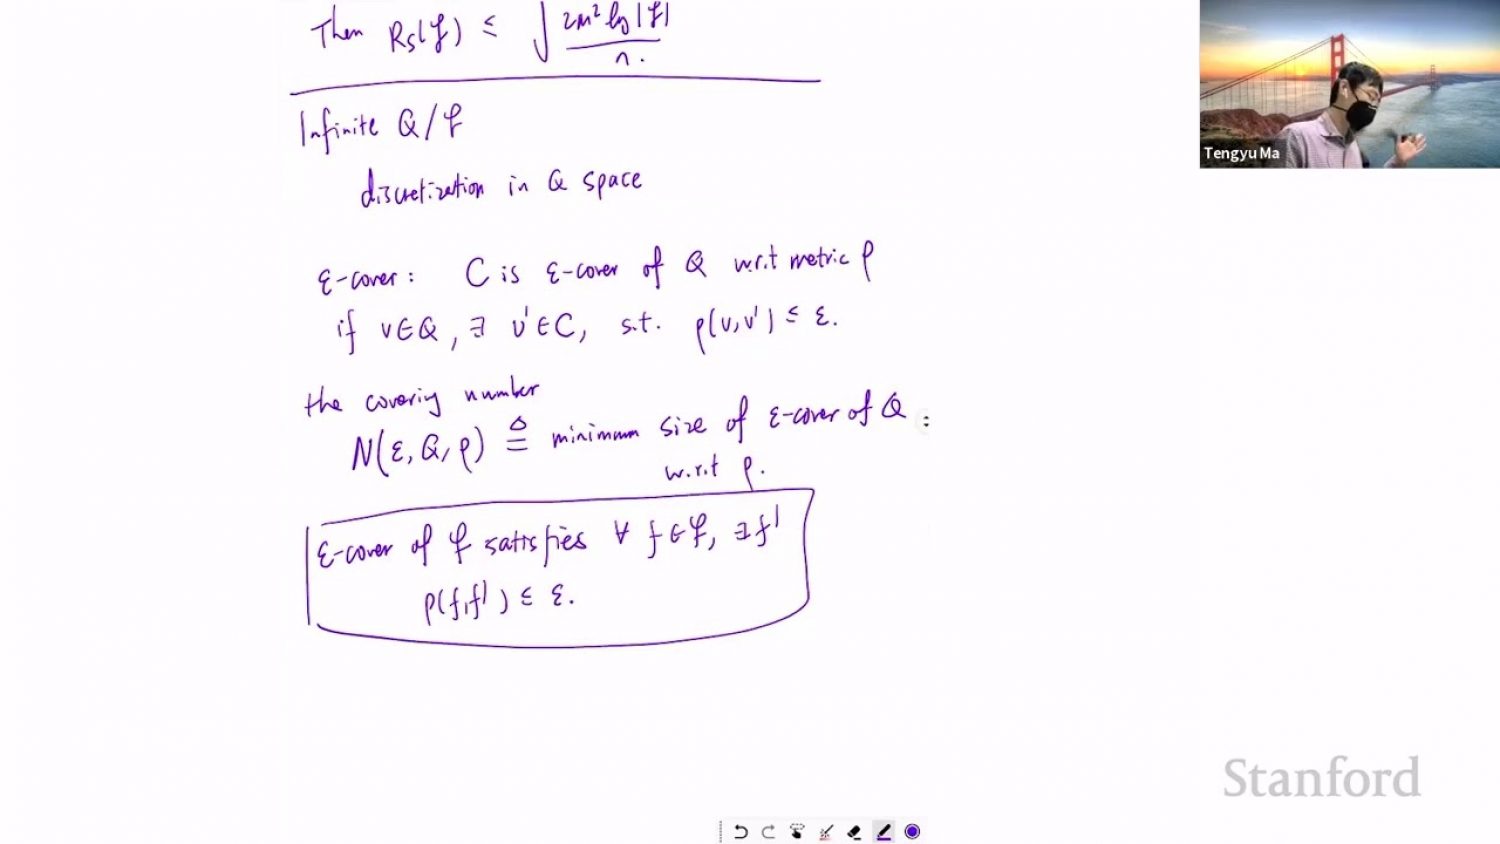 Then Rs(F) ≤ √(2M² log|F| / n.)
Infinite Q/F
discretization in Q space
ε-cover: C is ε-cover of Q w.r.t metric ρ
if v∈Q, ∃ v'∈C, s.t. ρ(v,v') ≤ ε.
the covering number
N(ε,Q,ρ) ≜ minimum size of ε-cover of Q
w.r.t ρ.
ε-cover of F satisfies ∀ f∈F, ∃f'
ρ(f,f') ≤ ε.
Tengyu Ma
Stanford